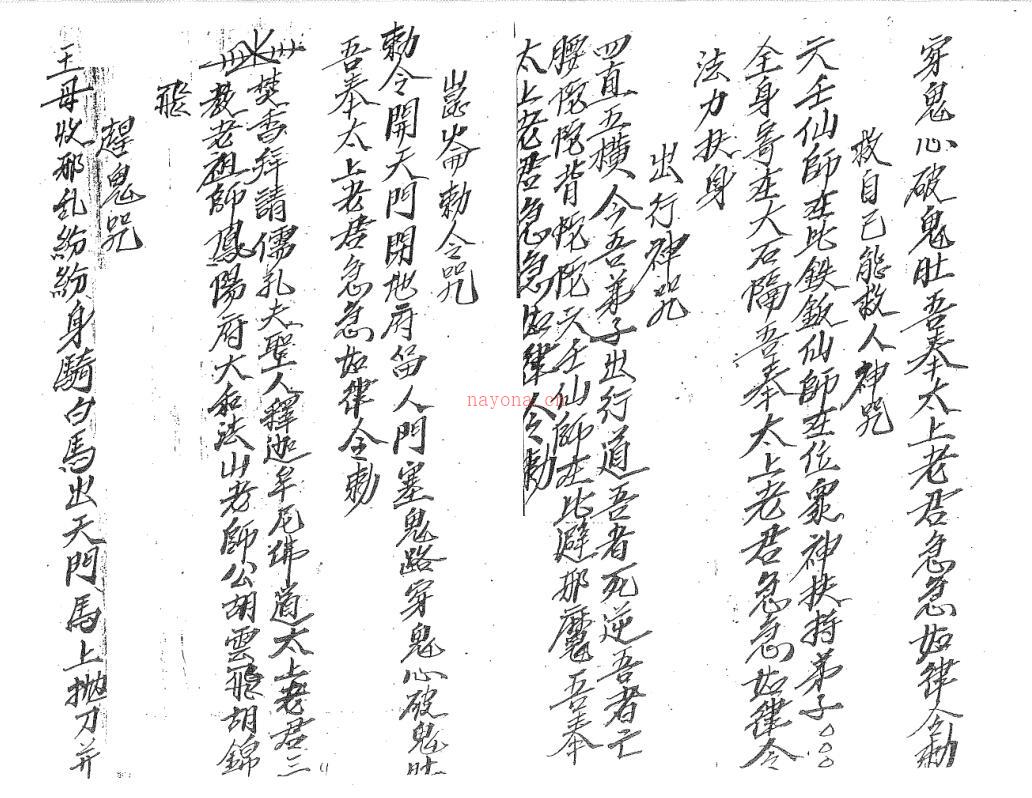 穿鬼心破鬼肚吾奉太上老君急急如律令勅
救自己能救人神咒
六壬仙師在此鉄鈑仙師在位衆神扶持弟子○○○
全身寄在大石隔吾奉太上老君急急如律令
法力扶身
出行神咒
四直五橫今吾弟子出行道吾者死逆吾者亡
腰陀陀背陀陀六壬仙師在此避邪魔吾奉
太上老君急急如律令勅
崑崙勅令咒
勅令開天門閉地府留人門塞鬼路穿鬼心破鬼肚
吾奉太上老君急急如律令勅
焚香拜請儒孔夫聖人釋迦牟尼佛道太上老君三
教老祖師鳳陽府大和法山老師公胡雲飛胡錦
飛
趕鬼咒
王母收邪乱紛紛身騎白馬出天門馬上拋刀并
nayona.cn